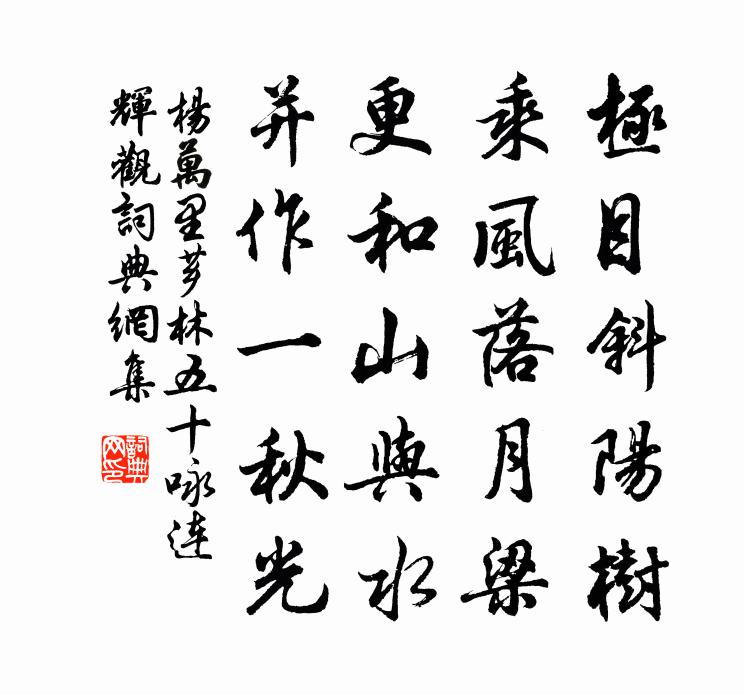 極目斜陽樹
乘風落月梁
更和山與水
并作一秋光
楊萬里芗林五十咏連
輝觀詞典網集
詞典网印